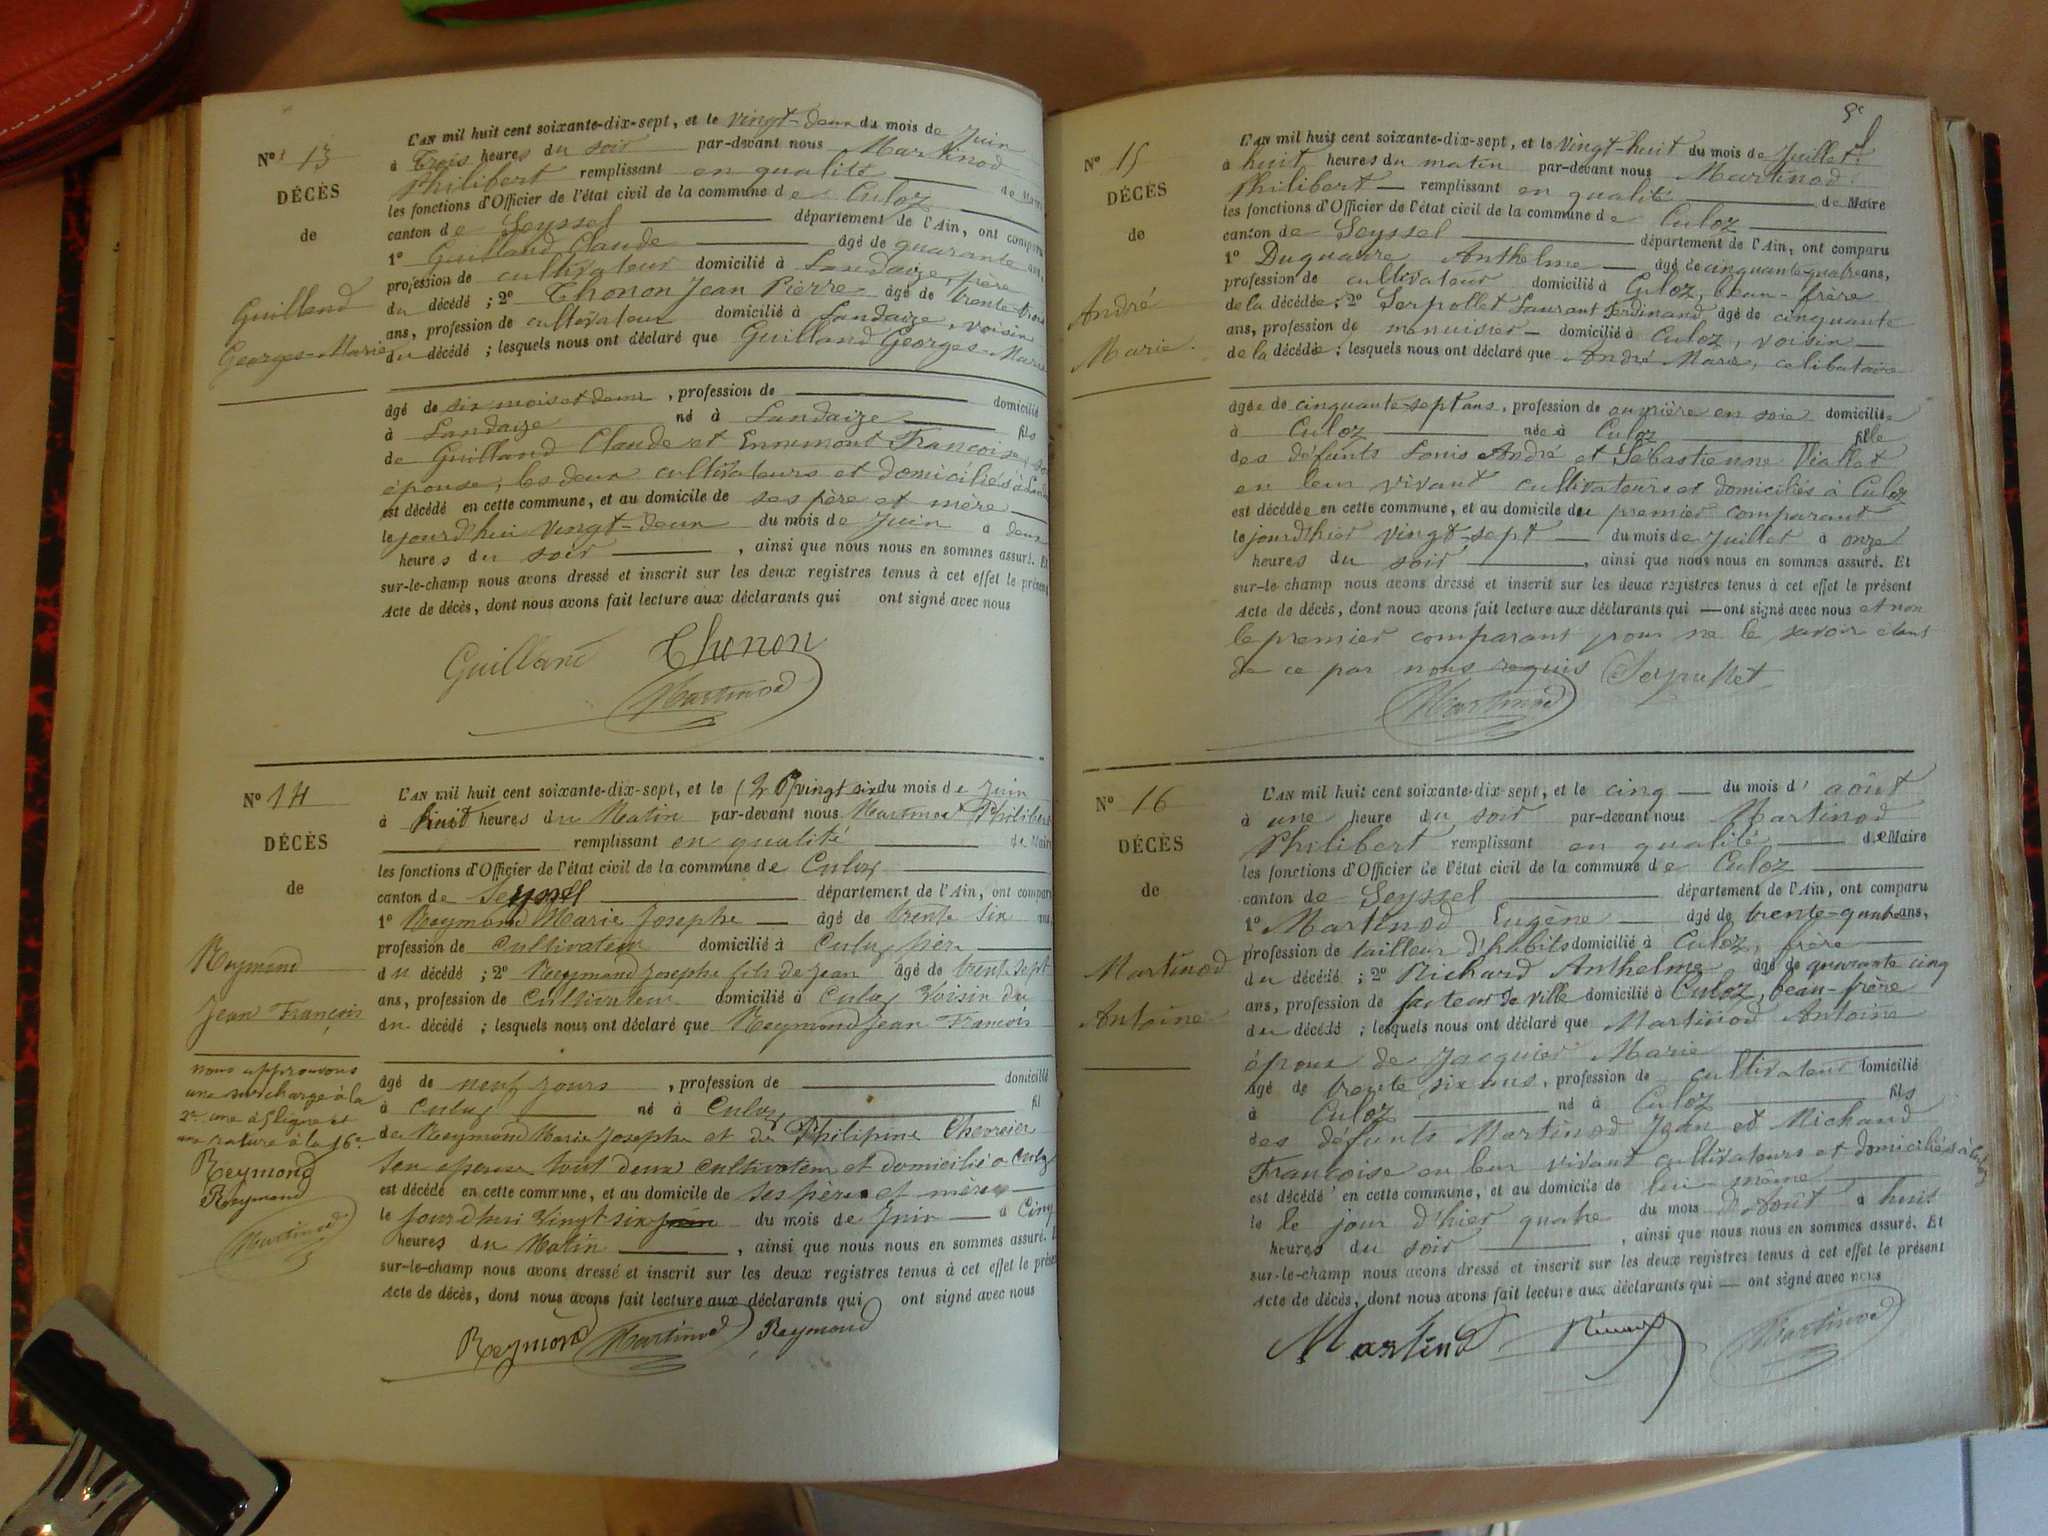 N° 13
DÉCÈS
de
Guilland
Georges-Marie
L'AN mil huit cent soixante-dix-sept, et le vingt-deux du mois de Juin
à trois heures du soir par-devant nous Martinod
Philibert remplissant en qualité de Maire
les fonctions d'Officier de l'état civil de la commune de Culoz
canton de Seyssel département de l'Ain, ont comparu
1° Guilland Claude âgé de quarante ans,
profession de cultivateur domicilié à Landaize, père
du décédé ; 2° Thonon Jean Pierre âgé de trente-trois
ans, profession de cultivateur domicilié à Landaize, voisin
du décédé ; lesquels nous ont déclaré que Guilland Georges-Marie
âgé de six mois et demi, profession de domicilié
à Landaize né à Landaize fils
de Guilland Claude et Françoise, son
épouse, les deux cultivateurs et domiciliés à
est décédé en cette commune, et au domicile de ses père et mère
le jourd'hui vingt-deux du mois de Juin à deux
heures du soir, ainsi que nous nous en sommes assuré. Et
sur-le-champ nous avons dressé et inscrit sur les deux registres tenus à cet effet le présent
Acte de décès, dont nous avons fait lecture aux déclarants qui ont signé avec nous
Guilland Thonon
Martinod
N° 14
DÉCÈS
de
Reymond
Jean François
nous approuvons
une surcharge à la
2me une à 5 ligne et
une rature à la 16e
Reymond
Reymond
Martinod
L'AN mil huit cent soixante-dix-sept, et le (26) vingt six du mois de Juin
à huit heures du Matin par-devant nous Martinod Philibert
remplissant en qualité de Maire
les fonctions d'Officier de l'état civil de la commune de Culoz
canton de Seyssel département de l'Ain, ont comparu
1° Reymond Marie Josephe âgé de trente six ans,
profession de Cultivateur domicilié à Culoz père
du décédé ; 2° Reymond Josephe fils de Jean âgé de trente sept
ans, profession de Cultivateur domicilié à Culoz Voisin du
du décédé ; lesquels nous ont déclaré que Reymond Jean François
âgé de neuf jours, profession de domicilié
à Culoz né à Culoz fil
de Reymond Marie Josephe et de Philipine Chevrier
Son epouse tout deux Cultivateur et domicilié a Culoz
est décédé en cette commune, et au domicile de ses père et mère
le jourdhui Vingt six juin du mois de Juin à Cinq
heures du Matin, ainsi que nous nous en sommes assuré. Et
sur-le-champ nous avons dressé et inscrit sur les deux registres tenus à cet effet le présent
Acte de décès, dont nous avons fait lecture aux déclarants qui ont signé avec nous
Reymond Martinod Reymond
N° 15
DÉCÈS
de
André
Marie.
L'AN mil huit cent soixante-dix-sept, et le vingt-huit du mois de Juillet
à huit heures du matin par-devant nous Martinod
Philibert remplissant en qualité de Maire
les fonctions d'Officier de l'état civil de la commune de Culoz
canton de Seyssel département de l'Ain, ont comparu
1° Duquaire Anthelme âgé de cinquante quatre ans,
profession de cultivateur domicilié à Culoz, beau-frère
de la décédée ; 2° Serpollet Laurant Ferdinand âgé de cinquante
ans, profession de menuisier domicilié à Culoz, voisin
de la décédée ; lesquels nous ont déclaré que André Marie, celibataire
âgée de cinquante sept ans, profession de ouvrière en soie domiciliée
à Culoz née à Culoz fille
des défunts Louis André et Sébastienne Viallet
en leur vivant cultivateurs et domiciliés à Culoz
est décédée en cette commune, et au domicile du premier comparant
le jourd'hier vingt-sept du mois de Juillet à onze
heures du soir, ainsi que nous nous en sommes assuré. Et
sur-le-champ nous avons dressé et inscrit sur les deux registres tenus à cet effet le présent
Acte de décès, dont nous avons fait lecture aux déclarants qui ont signé avec nous et non
le premier comparant pour ne le savoir étant
de ce par nous requis Serpollet
Martinod
N° 16
DÉCÈS
de
Martinod
Antoine
L'AN mil huit cent soixante-dix-sept, et le cinq du mois d'août
à une heure du soir par-devant nous Martinod
Philibert remplissant en qualité de Maire
les fonctions d'Officier de l'état civil de la commune de Culoz
canton de Seyssel département de l'Ain, ont comparu
1° Martinod Eugène âgé de trente-quatre ans,
profession de tailleur d'habits domicilié à Culoz, frère
du décédé ; 2° Richard Anthelme âgé de quarante cinq
ans, profession de facteur de ville domicilié à Culoz, beau-frère
du décédé ; lesquels nous ont déclaré que Martinod Antoine
époux de Jacquier Marie
âgé de trente six ans, profession de cultivateur domicilié
à Culoz né à Culoz fils
des défunts Martinod Jean et Michaud
Françoise en leur vivant cultivateurs et domiciliés à Culoz
est décédé en cette commune, et au domicile de lui-même
le le jour d'hier quatre du mois d'Août à huit
heures du soir, ainsi que nous nous en sommes assuré. Et
sur-le-champ nous avons dressé et inscrit sur les deux registres tenus à cet effet le présent
Acte de décès, dont nous avons fait lecture aux déclarants qui ont signé avec nous
Martinod Martinod